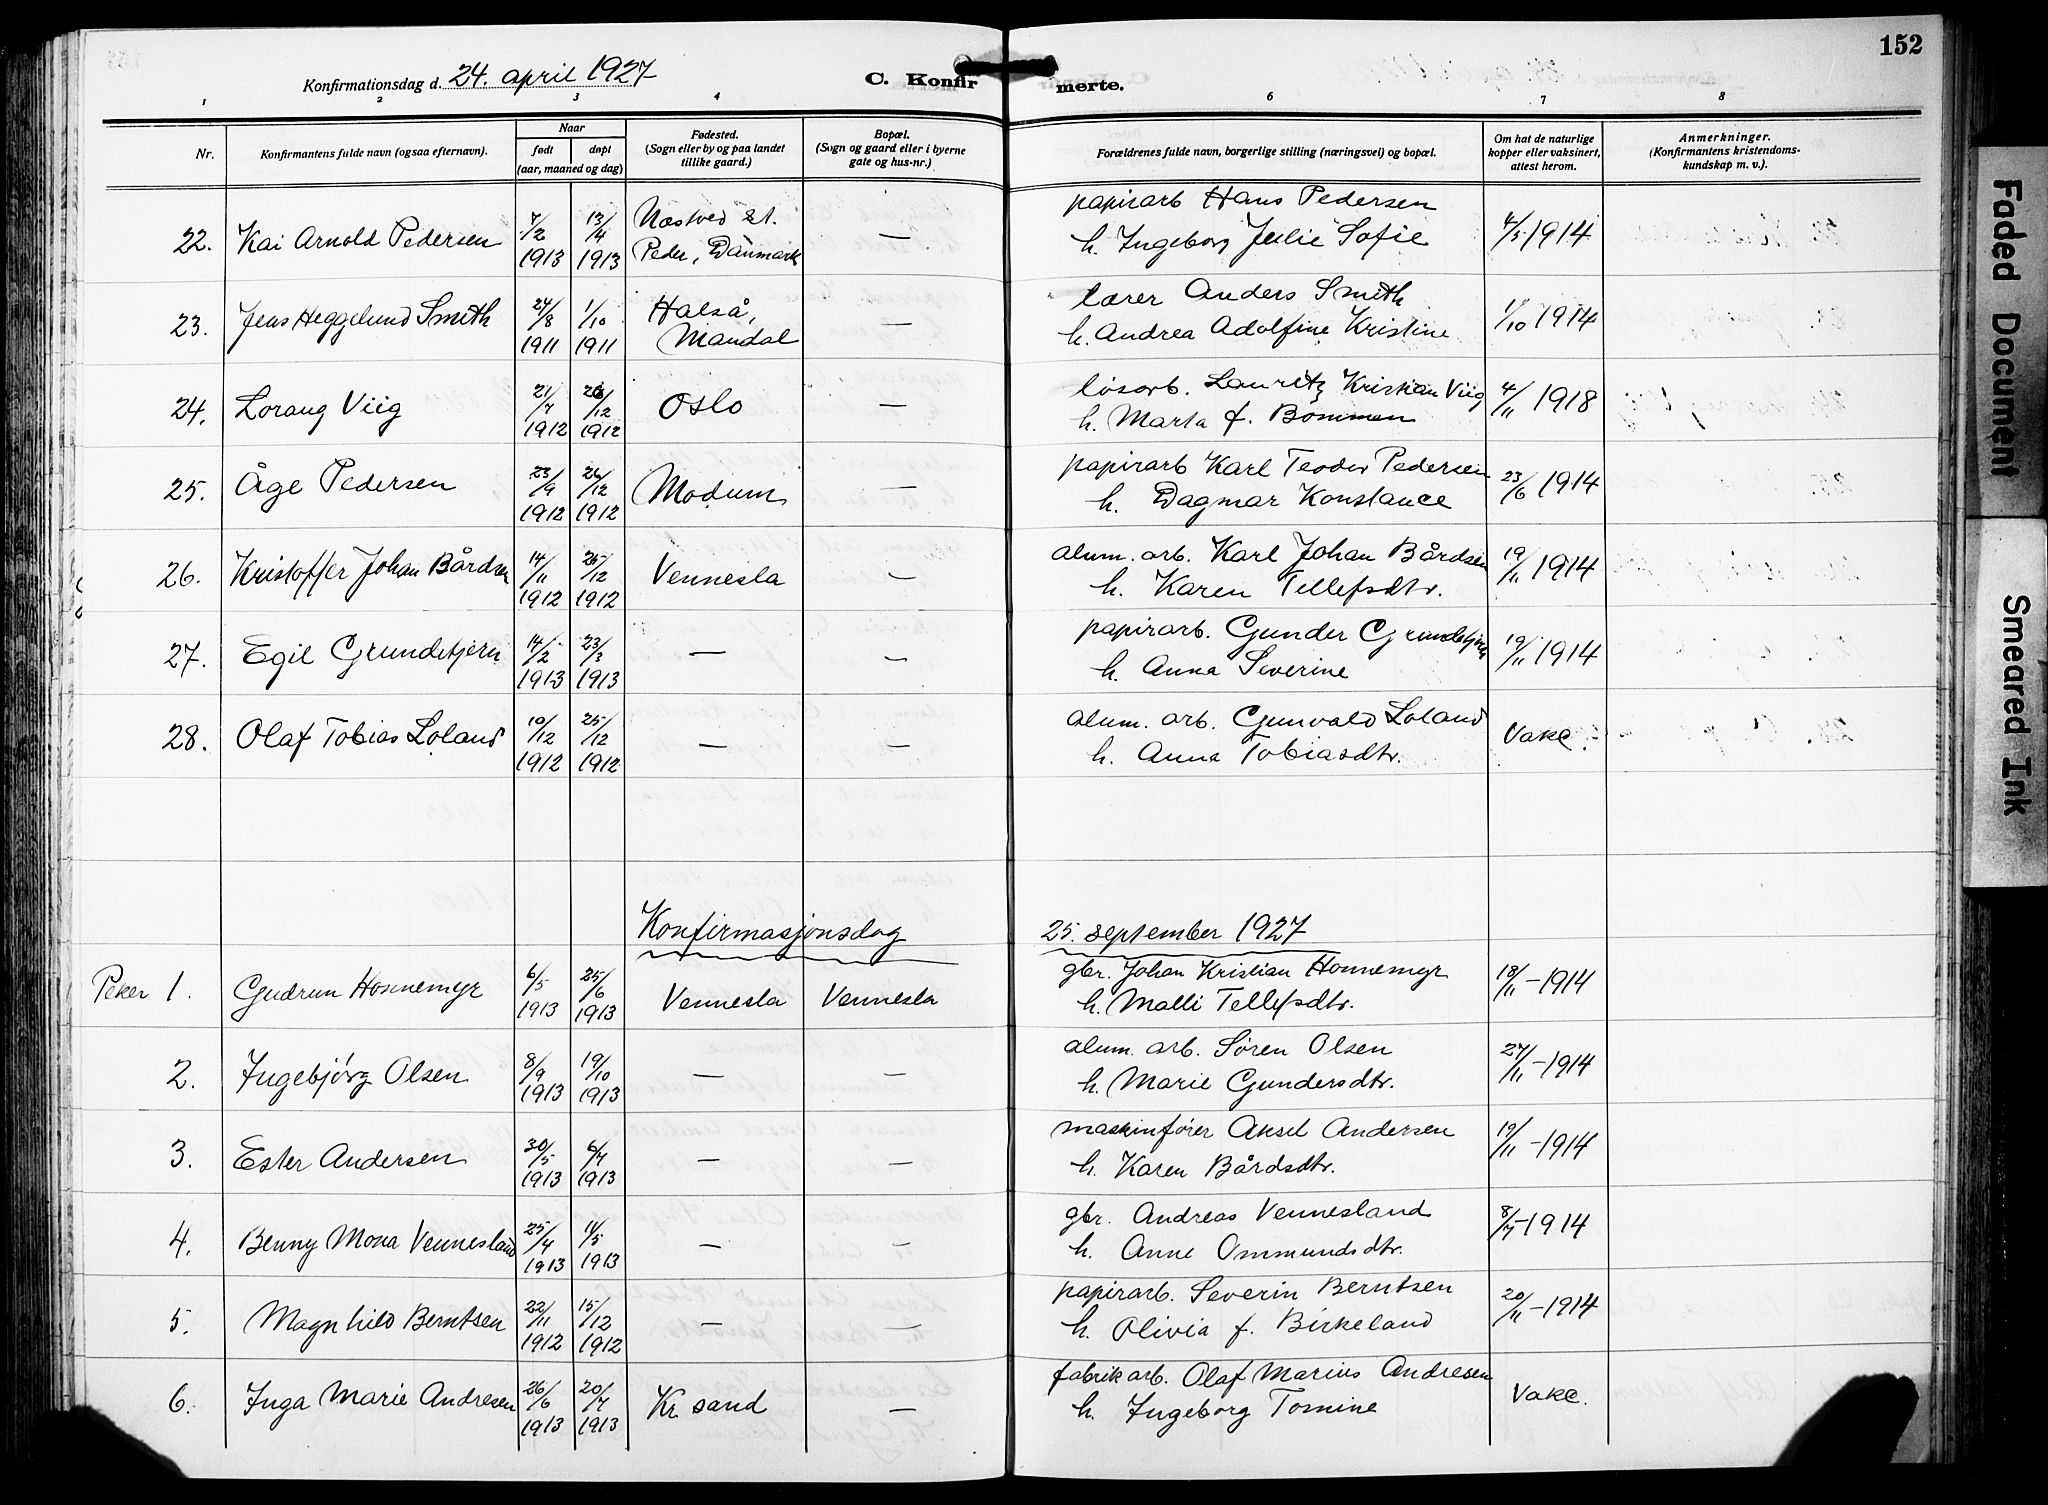 152
Konfirmationsdag d. 24. april 1927 C. Konfirmerte.
1 2 3 4 6 7 8
Nr. Konfirmantens fulde navn (ogsaa efternavn). Naar født døpt (aar, maaned og dag) Fødested. (Sogn eller by og paa landet tillike gaard.) Bopæl. (Sogn og gaard eller i byerne gate og hus-nr.) Forældrenes fulde navn, borgerlige stilling (næringsvei) og bopæl. Om hat de naturlige kopper eller vaksinert, attest herom. Anmerkninger. (Konfirmantens kristendomskundskap m. v.).
22. Kai Arnold Pedersen 7/2 1913 13/4 1913 Næstved St. Peder, Danmark — papirarb Hans Pedersen h. Ingeborg Julie Sofie 4/5 1914
23. Jens Heggelund Smith 24/8 1911 1/10 1911 Halså, Mandal — lærer Anders Smith h. Andrea Adolfine Kristine 1/10 1914
24. Lorang Viig 21/7 1912 26/12 1912 Oslo — løsarb. Lauritz Kristian Viig h. Marta f. Bommen 4/11 1918
25. Åge Pedersen 23/9 1912 26/12 1912 Modum — papirarb Karl Teodor Pedersen h. Dagmar Konstance 23/6 1914
26. Kristoffer Johan Bårdsen 14/11 1912 25/12 1912 Vennesla — alum. arb. Karl Johan Bårdsen h. Karen Tellefsdtr. 19/11 1914
27. Egil Grundetjern 14/2 1913 23/3 1913 — — papirarb. Gunder Grundetjern h. Anna Severine 19/11 1914
28. Olaf Tobias Loland 10/12 1912 25/12 1912 — — alum. arb. Gunvald Loland h. Anna Tobiasdtr. Vakc.
Konfirmasjonsdag 25. september 1927
Piker 1. Gudrun Honnemyr 6/5 1913 25/6 1913 Vennesla Vennesla gbr. Johan Kristian Honnemyr h. Malli Tellefsdtr. 18/11 - 1914
2. Ingebjørg Olsen 8/9 1913 19/10 1913 — — alum. arb. Søren Olsen h. Marie Gundersdtr. 27/11 - 1914
3. Ester Andersen 30/5 1913 6/7 1913 — — maskinfører Aksel Andersen h. Karen Bårdsdtr. 19/11 - 1914
4. Benny Mona Vennesland 25/4 1913 11/5 1913 — — gbr. Andreas Vennesland h. Anne Ommundsdtr. 8/7 - 1914
5. Magnhild Berntsen 22/11 1912 15/12 1912 — — papirarb. Severin Berntsen h. Olivia f. Birkeland 20/11 - 1914
6. Inga Marie Andresen 26/6 1913 20/7 1913 Kr sand — fabrikarb. Olaf Marius Andresen h. Ingeborg Tomine Vakc.
Faded Document
Smeared Ink